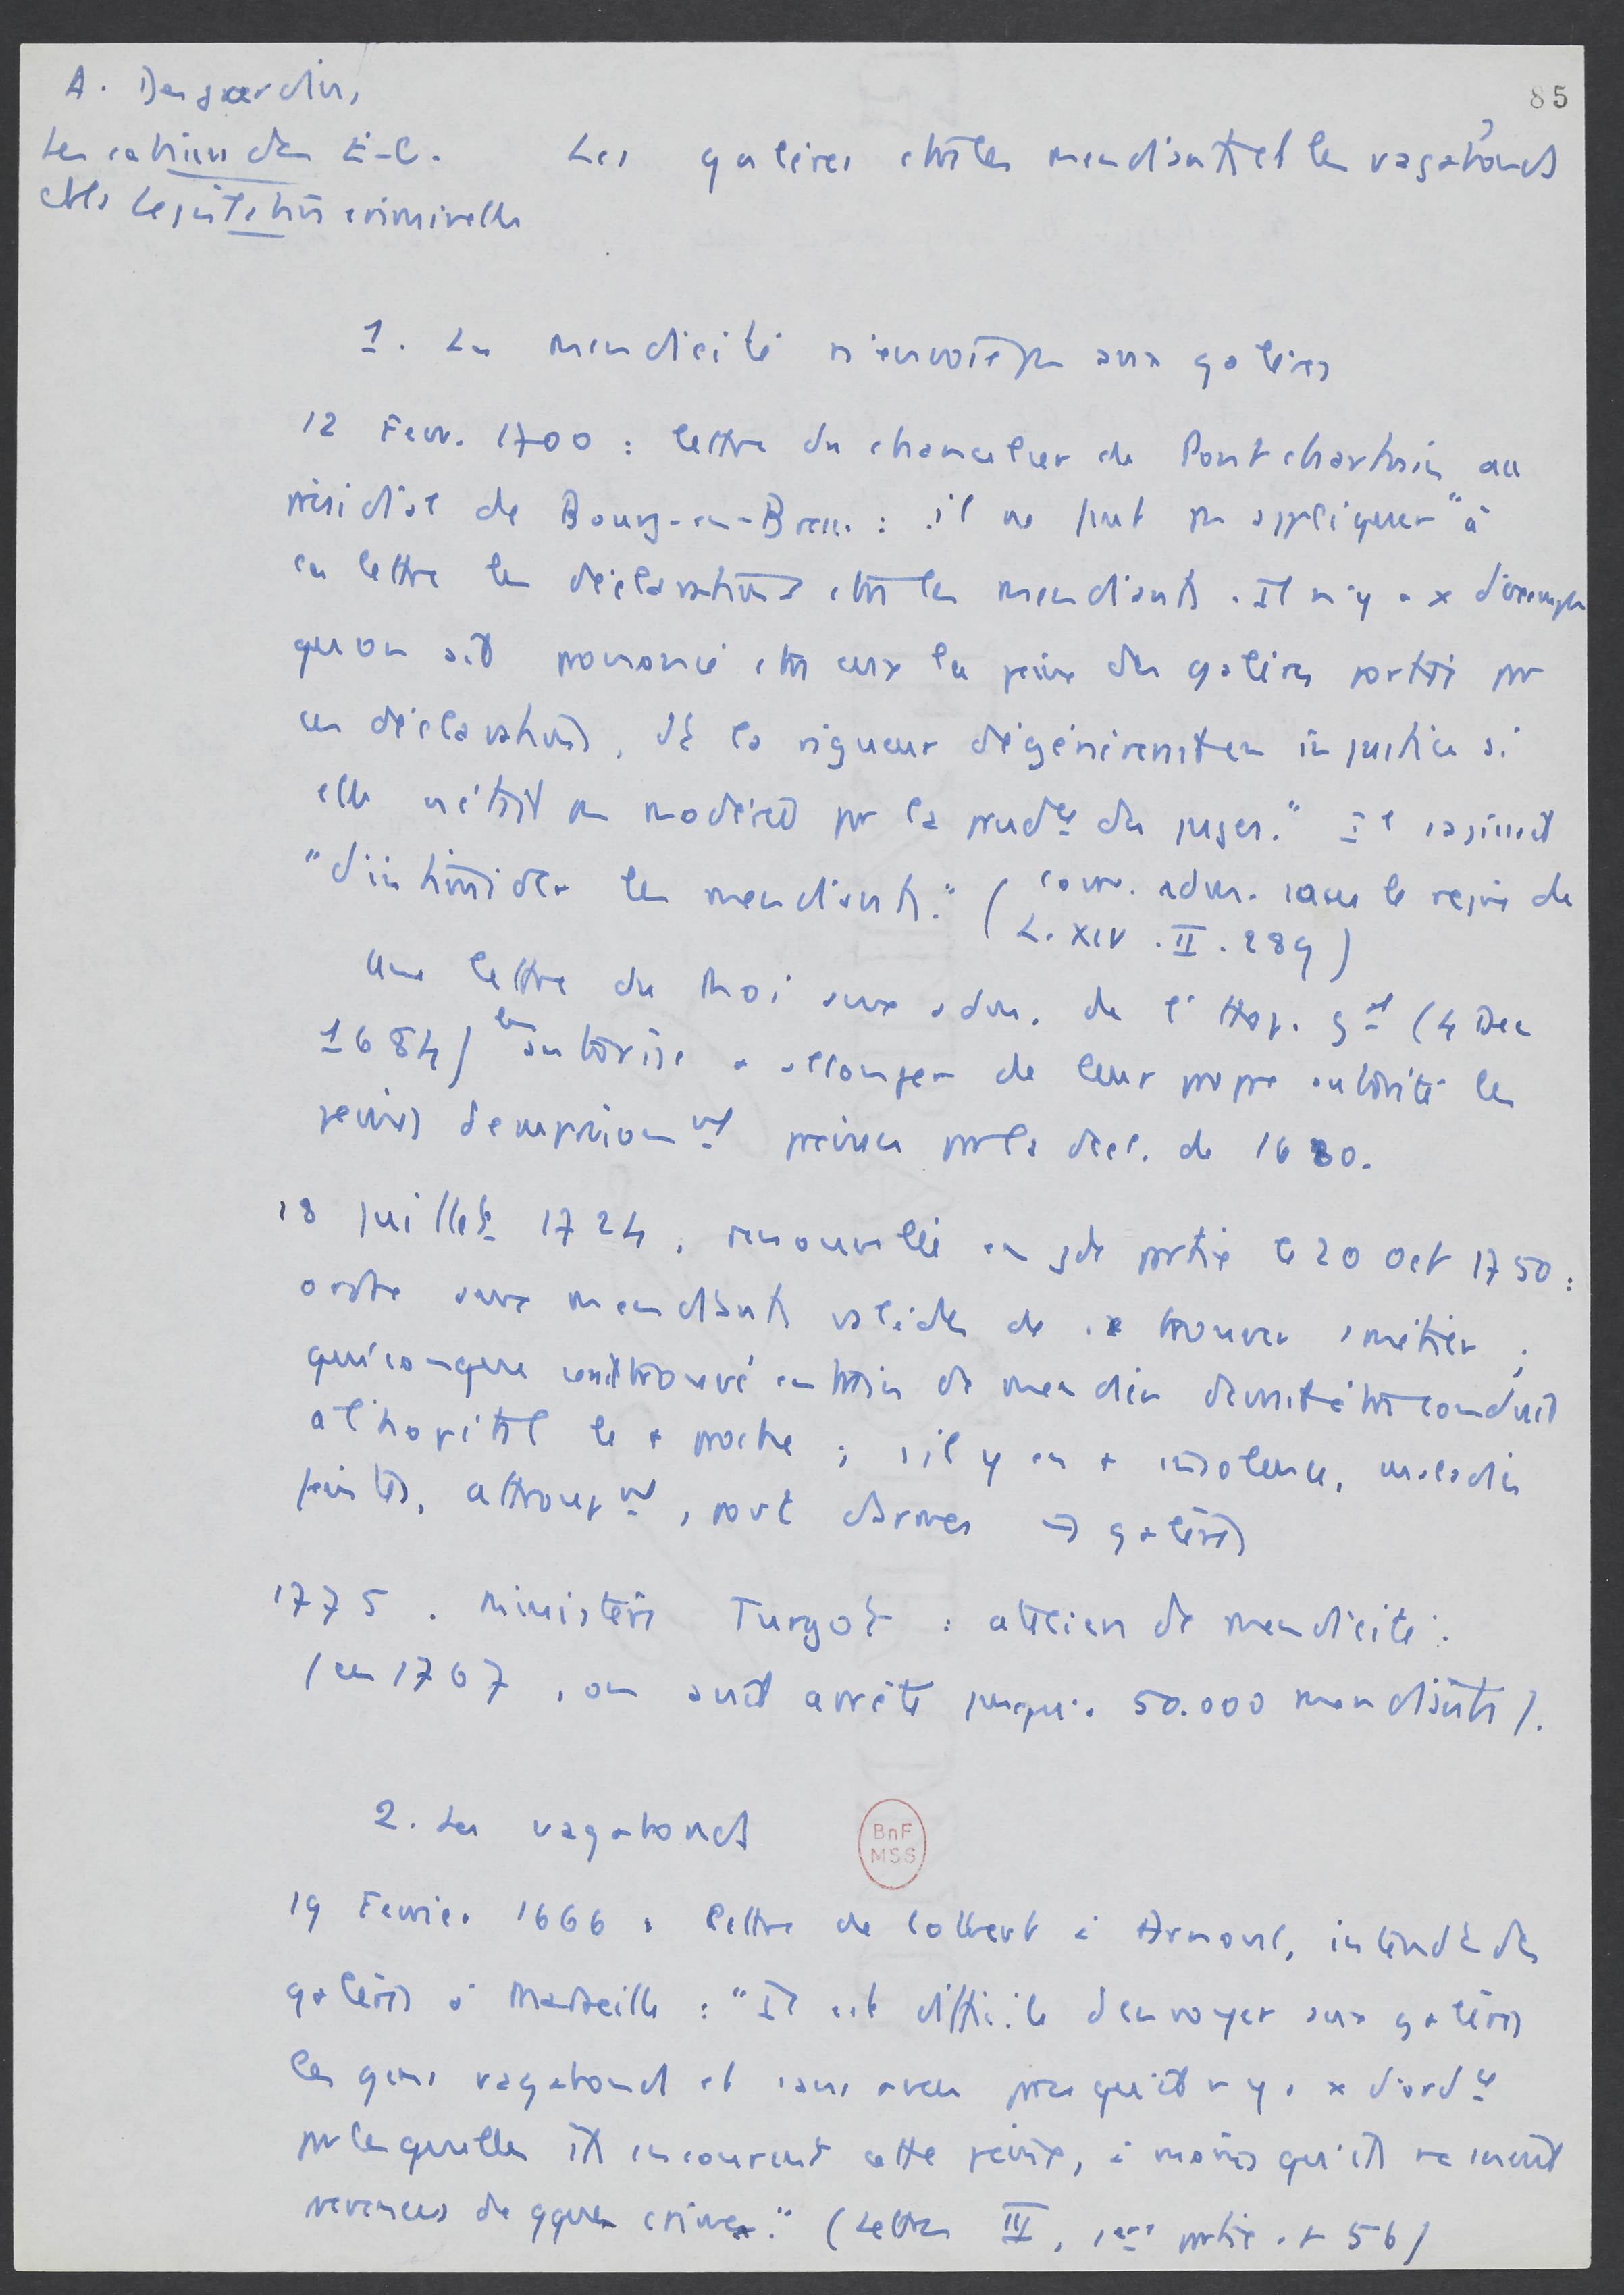 A. Desjardins,
85
Les cahiers des E-G.
et la législation criminelle
Les galères ctre les mendiants et les vagabonds
1. La mendicité n'envoie pas aux galères
12 Fevr. 1700 : lettre du chancelier de Pontchartrain au
présidial de Bourg-en-Bresse : il ne faut pas appliquer "à
la lettre les déclarations ctre les mendiants. Il n'y a x d'exemple
qu'on ait prononcé ctre eux la peine des galères portée par
ces déclarations, dt la rigueur dégénérerait en injustice si
elle n'était pas modérée par la prudce des juges." Il s'agissait
"d'intimider les mendiants." (Corr. adm. sous le règne de
L. XIV. II. 289)
Une lettre du Roi aux adm. de l'Hop. gal (4 Dec
1684) les autorise a allonger de leur propre autorité les
peines d'emprisonnt prévues par la decl. de 1680.
18 juillet 1724, renouvelée en gde partie le 20 Oct 1750 :
ordre aux mendiants valides de se trouver 1 métier ;
quiconque serait trouvé en train de mendier devrait être conduit
a l'hopital le + proche ; s'il y en a insolence, maladies
feintes, attroupt, port d'armes → galères
1775. Ministère Turgot : ateliers de mendicité.
(en 1767, on avait arrêté jusqu'a 50.000 mendiants).
2. Les vagabonds
BnF
MSS
19 Fevrier 1666, lettre de Colbert à Arnoul, intendt des
galères à Marseille : "Il est difficile d'envoyer aux galères
les gens vagabonds et sans aveu parce qu'il n'y a x d'ordce
par lesquelles ils encourent cette peine, à moins qu'ils ne soient
prévenus de qques crimes." (Lettres III, 1ère partie p 56)